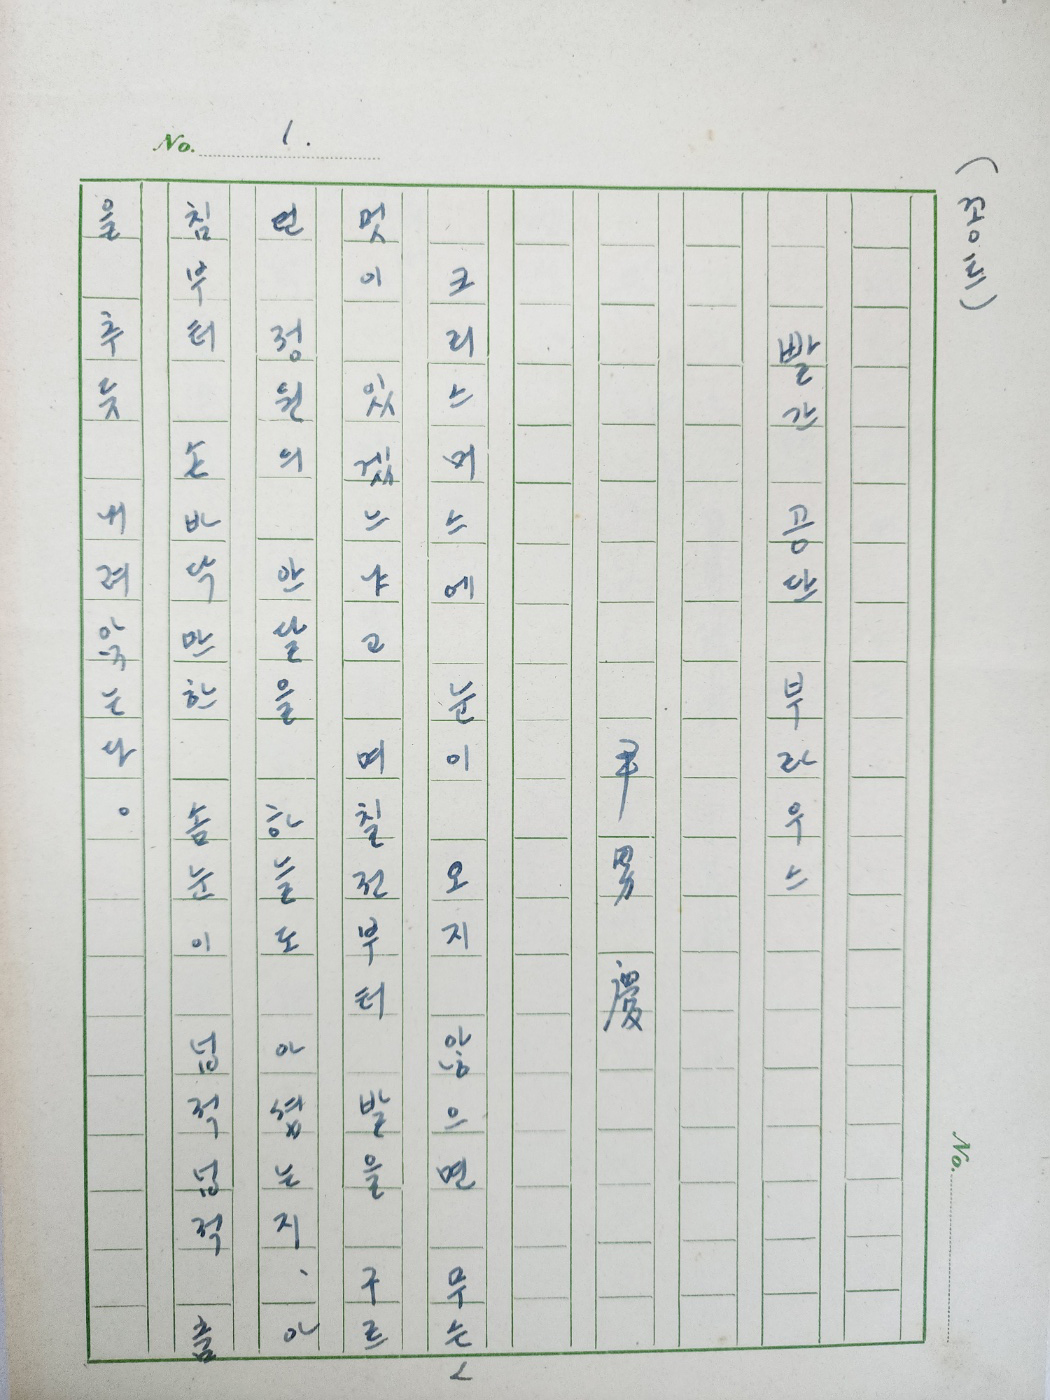 No. 1.
빨간 공단 부라우스
尹男慶
크리스머스에 눈이 오지 않으면 무슨
멋이 있겠느냐고 며칠전부터 발을 구르
던 정원의 안달을 하늘도 아셨는지、아
침부터 손바닥만한 솜눈이 넙적넙적 춤
을 추듯 내려앉는다。
No.